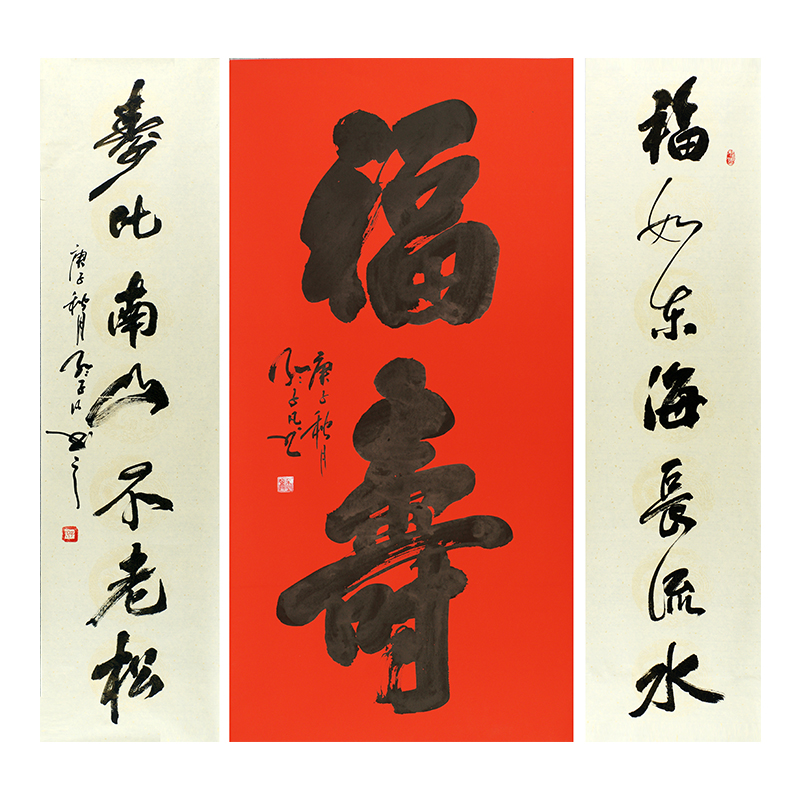 福如东海长流水
福寿
庚子秋月
寿比南山不老松
庚子秋月